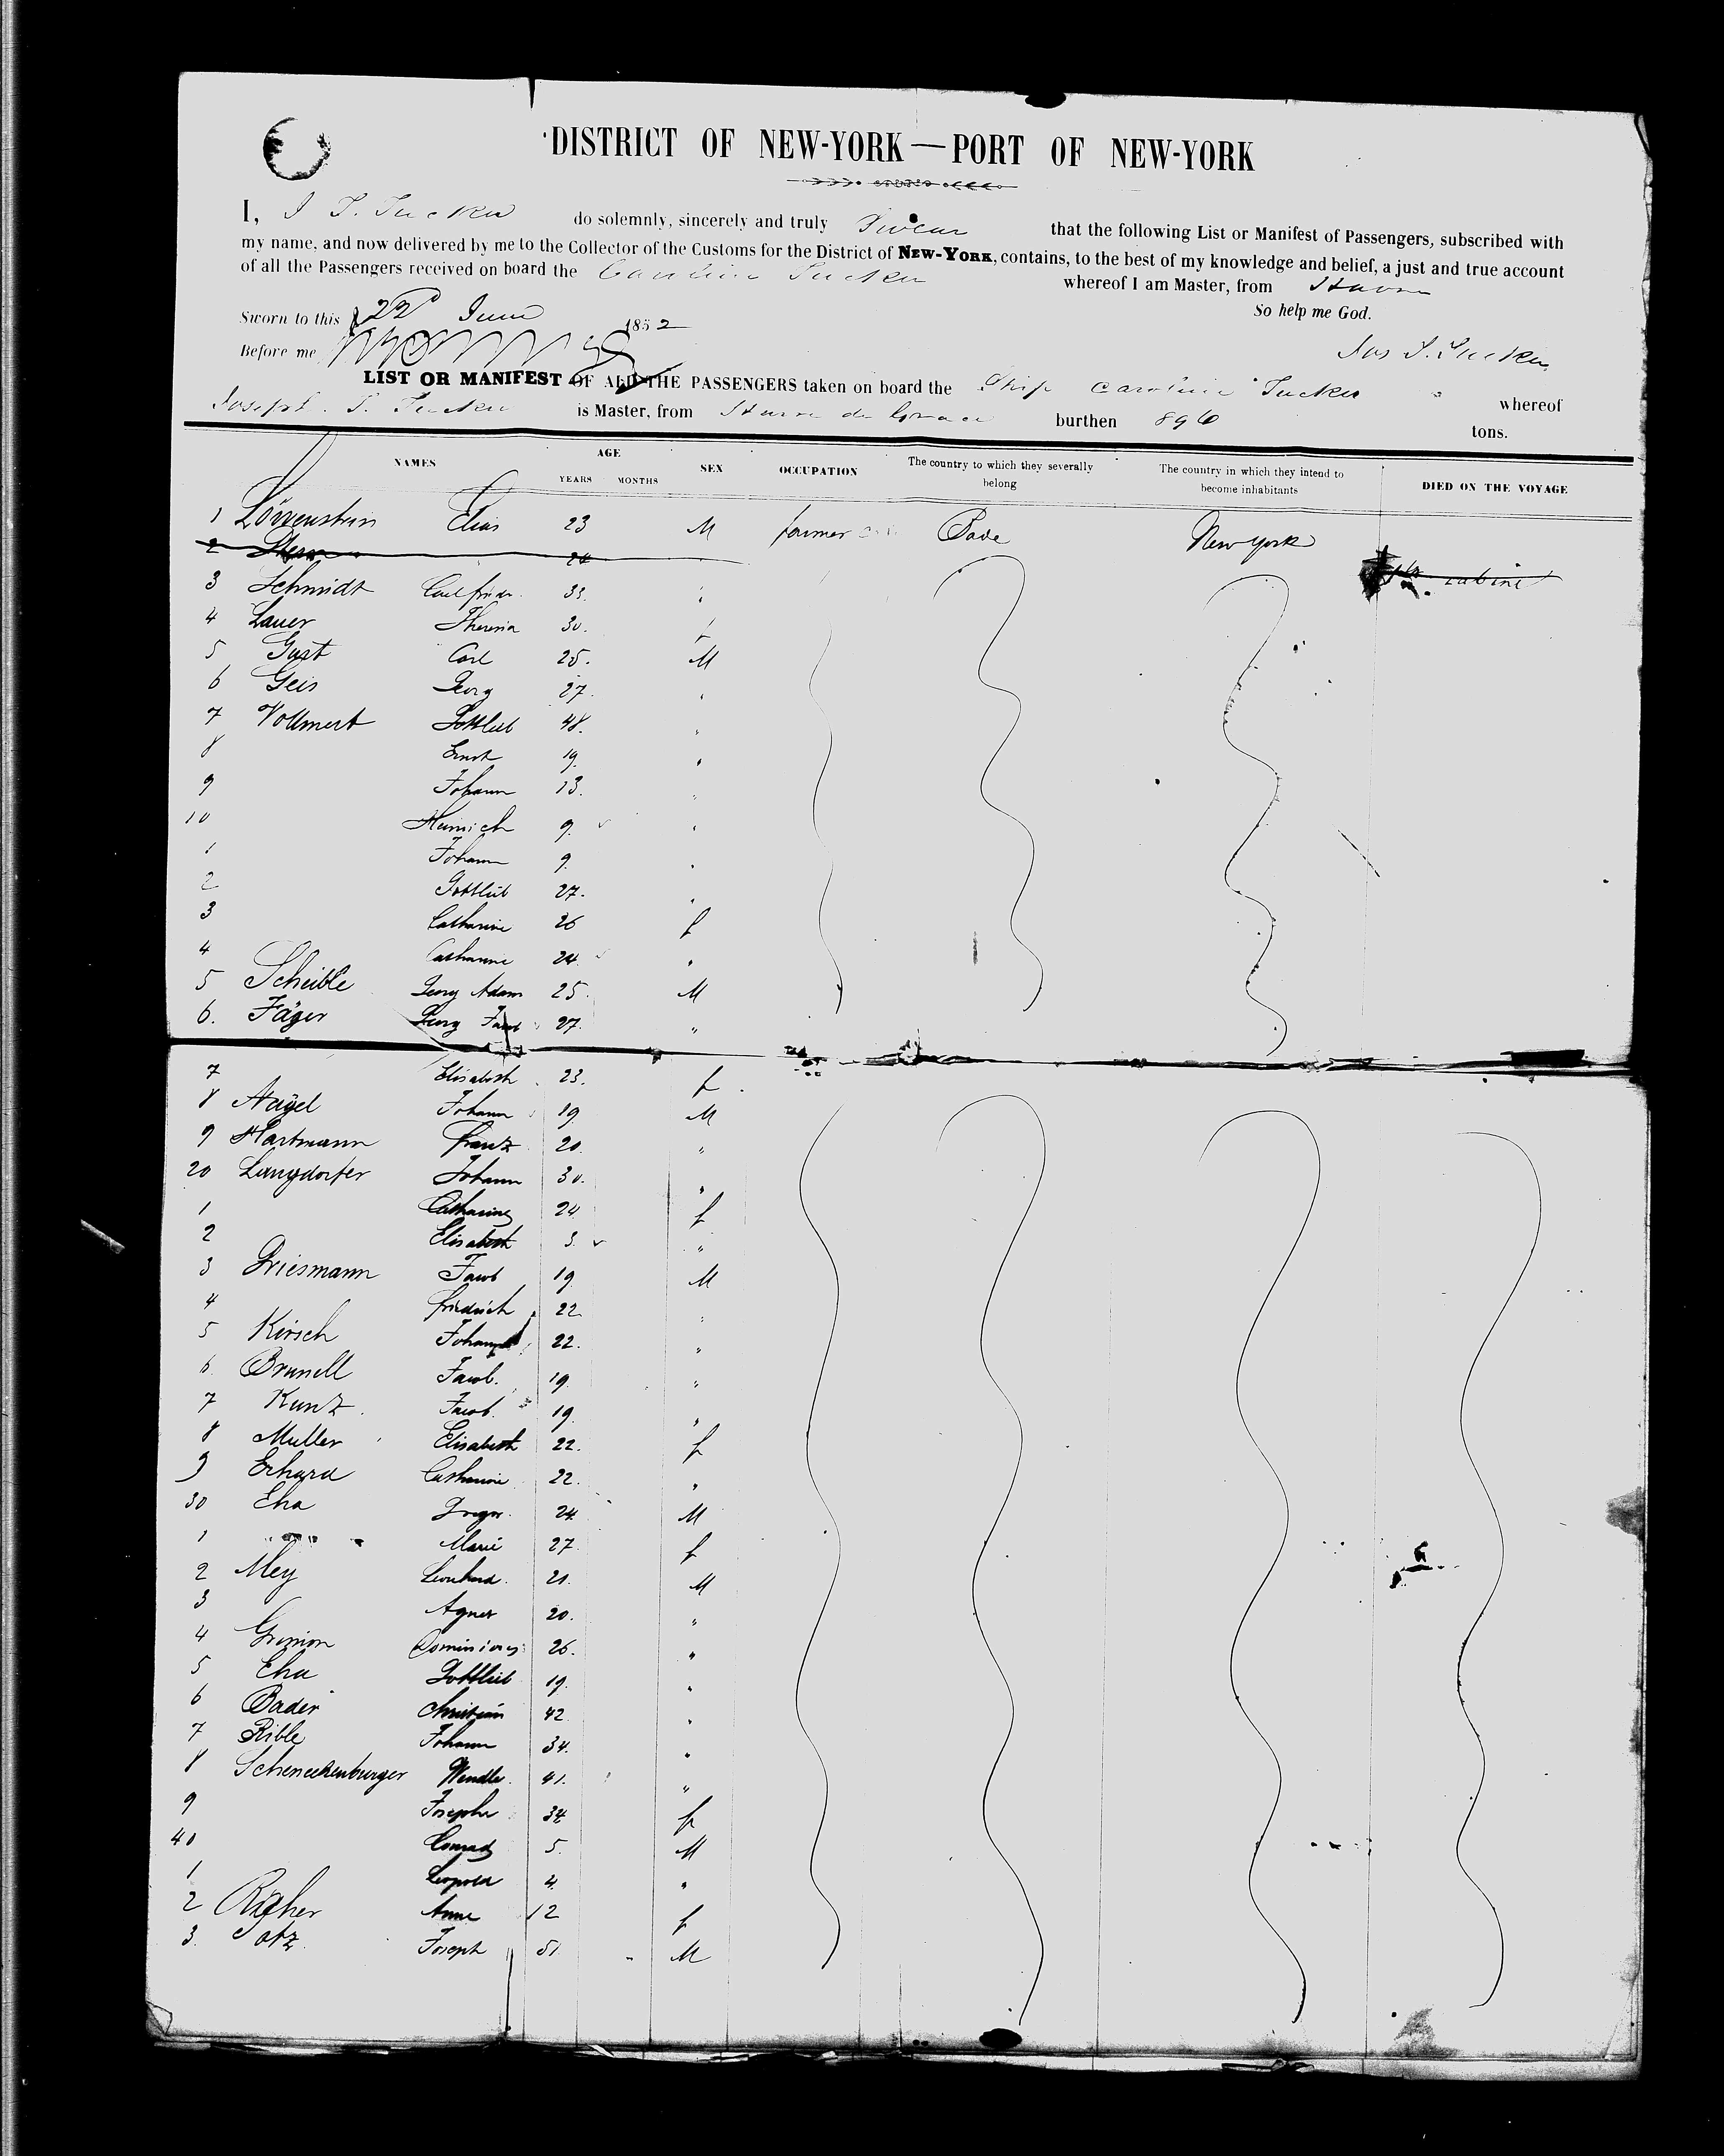 DISTRICT OF NEW-YORK — PORT OF NEW-YORK
I, J T. Tucker do solemnly, sincerely and truly Swear that the following List or Manifest of Passengers, subscribed with
my name, and now delivered by me to the Collector of the Customs for the District of NEW-YORK, contains, to the best of my knowledge and belief, a just and true account
of all the Passengers received on board the Caroline Tucker whereof I am Master, from Havre
So help me God.
Sworn to this 22d June 1852
Jos T. Tucker
Before me
LIST OR MANIFEST OF ALL THE PASSENGERS taken on board the Ship Caroline Tucker whereof
Joseph. T. Tucker is Master, from Havre de Grace burthen 896 tons.
NAMES AGE YEARS MONTHS SEX OCCUPATION The country to which they severally belong The country in which they intend to become inhabitants DIED ON THE VOYAGE
1 Löwenstein Elias 23 M farmer Bade New York
2 Stern 24 cabine
3 Schmidt Carl friedr. 33. "
4 Lauer Theresia 30.
5 Gust Carl 25. M
6 Geis Georg 27. "
7 Vollmert Gottlieb 48. "
8 Ernst 19. "
9 Johann 13. "
10 Heinrich 9. "
1 Johann 9. "
2 Gottlieb 27. "
3 Catharine 26 f
4 Catharine 24 "
5 Scheible Georg Adam 25. M
6. Jäger Georg Jacob 27. "
7 Elisabeth 23. f
8 Nagel Johann 19. M
9 Hartmann franz 20. "
20 Langdorfer Johann 30. "
1 Catharine 24 f
2 Elisabeth 3. "
3 Griesmann Jacob 19. M
4 friedrich 22 "
5 Kirsch Johann 22. "
6. Brunell Jacob. 19. "
7 Kunz. Jacob. 19. "
8 Muller Elisabeth 22. f
9 Erhard Catharine 22. "
30 Eha Gregor. 24. M
1 " Marie 27. f
2 Mey Leonhard. 21. M
3 Agnes 20. "
4 Grimion 26. "
5 Eha Gottlieb 19. "
6 Bader Christian 42. "
7 Rible Johann 34. "
8 Scheneckenburger Wendle. 41. "
9 Josepha 34 f
40 Conrad 5. M
1 Leopold 4. "
2 Righer Anne 12 f
3. Satz. Joseph 51. M